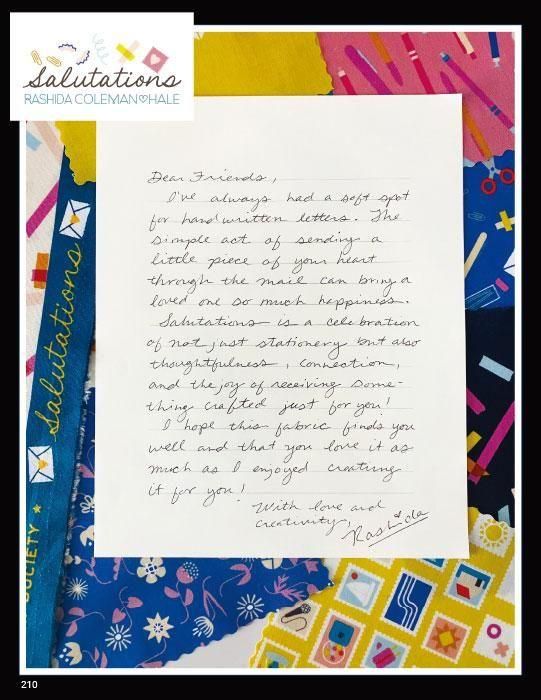 Salutations
RASHIDA COLEMAN♡HALE
Dear Friends,
I've always had a soft spot
for handwritten letters. The
simple act of sending a
little piece of your heart
through the mail can bring a
loved one so much happiness.
Salutations is a celebration
of not just stationery but also
thoughtfulness, connection,
and the joy of receiving some-
thing crafted just for you!
I hope this fabric finds you
well and that you love it as
much as I enjoyed creating
it for you!
With love and
creativity,
Rashida
Salutations
SOCIETY
210